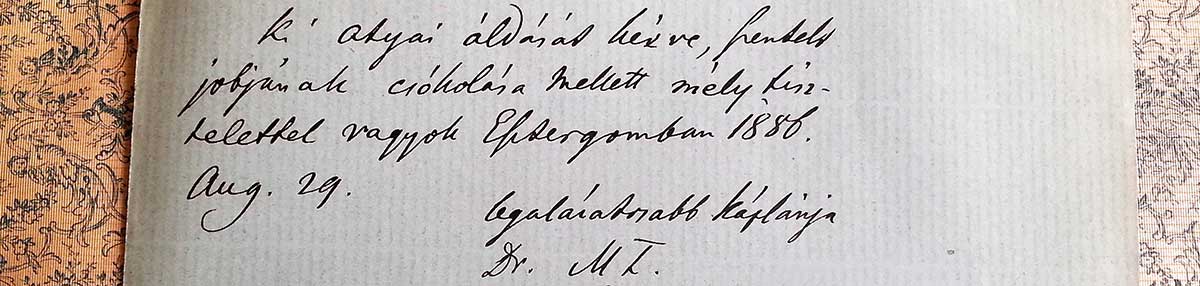 Ki atyai áldását kérve, szentelt
jobjának csókolása mellett mély tisz-
telettel vagyok Esztergomban 1886.
Aug. 29.
legalázatosabb káplánja
Dr. M T.